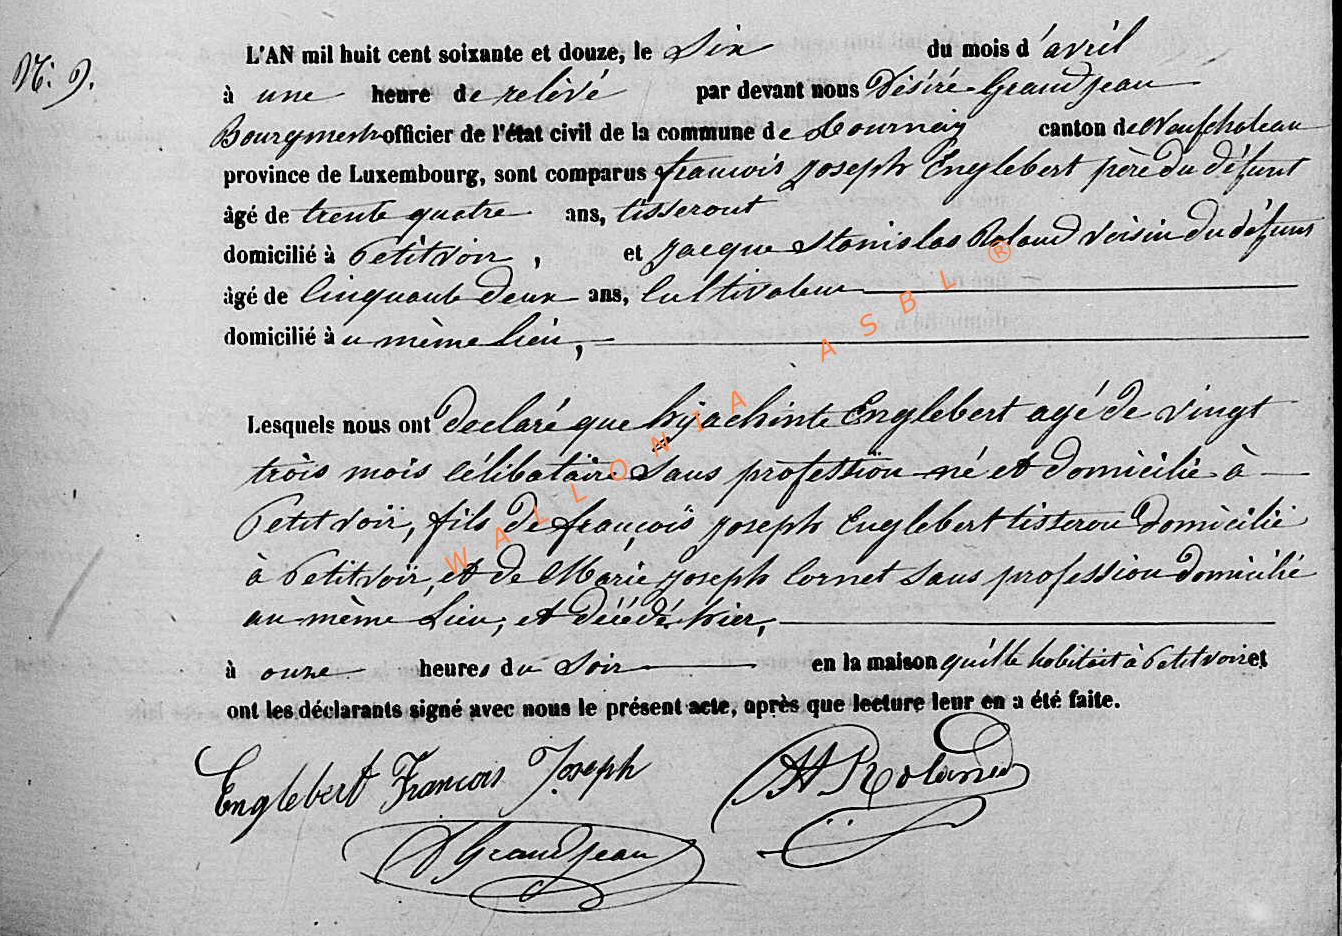 N: 9.
L'AN mil huit cent soixante et douze, le Six du mois d'avril
à une heure de relévé par devant nous Désiré Grandjean
Bourgmestre officier de l'état civil de la commune de Tournay canton de Neufchateau
province de Luxembourg, sont comparus francois Joseph Englebert père du défunt
àgé de trente quatre ans, tisserant
domicilié à Petitvoir, et Jacque Stanislas Roland voisin du défunt
àgé de Cinquante deux ans, Cultivateur
domicilié à u même lieu,
Lesquels nous ont declaré que hyachinte Englebert agé de vingt
trois mois célibataire Sans profession né et domicilié à
Petitvoir, fils de françois Joseph Englebert tisseron domicilié
à Petitvoir, et de Marie Joseph Cornet Sans profession domicilié
au même Lieu, et décédé hier,
à onze heures du Soir en la maison qu'il habitait à Petitvoir et
ont les déclarants signé avec nous le présent acte, après que lecture leur en a été faite.
Englebert Francois Joseph Roland
D Grandjean
WALLONIA ASBL ®